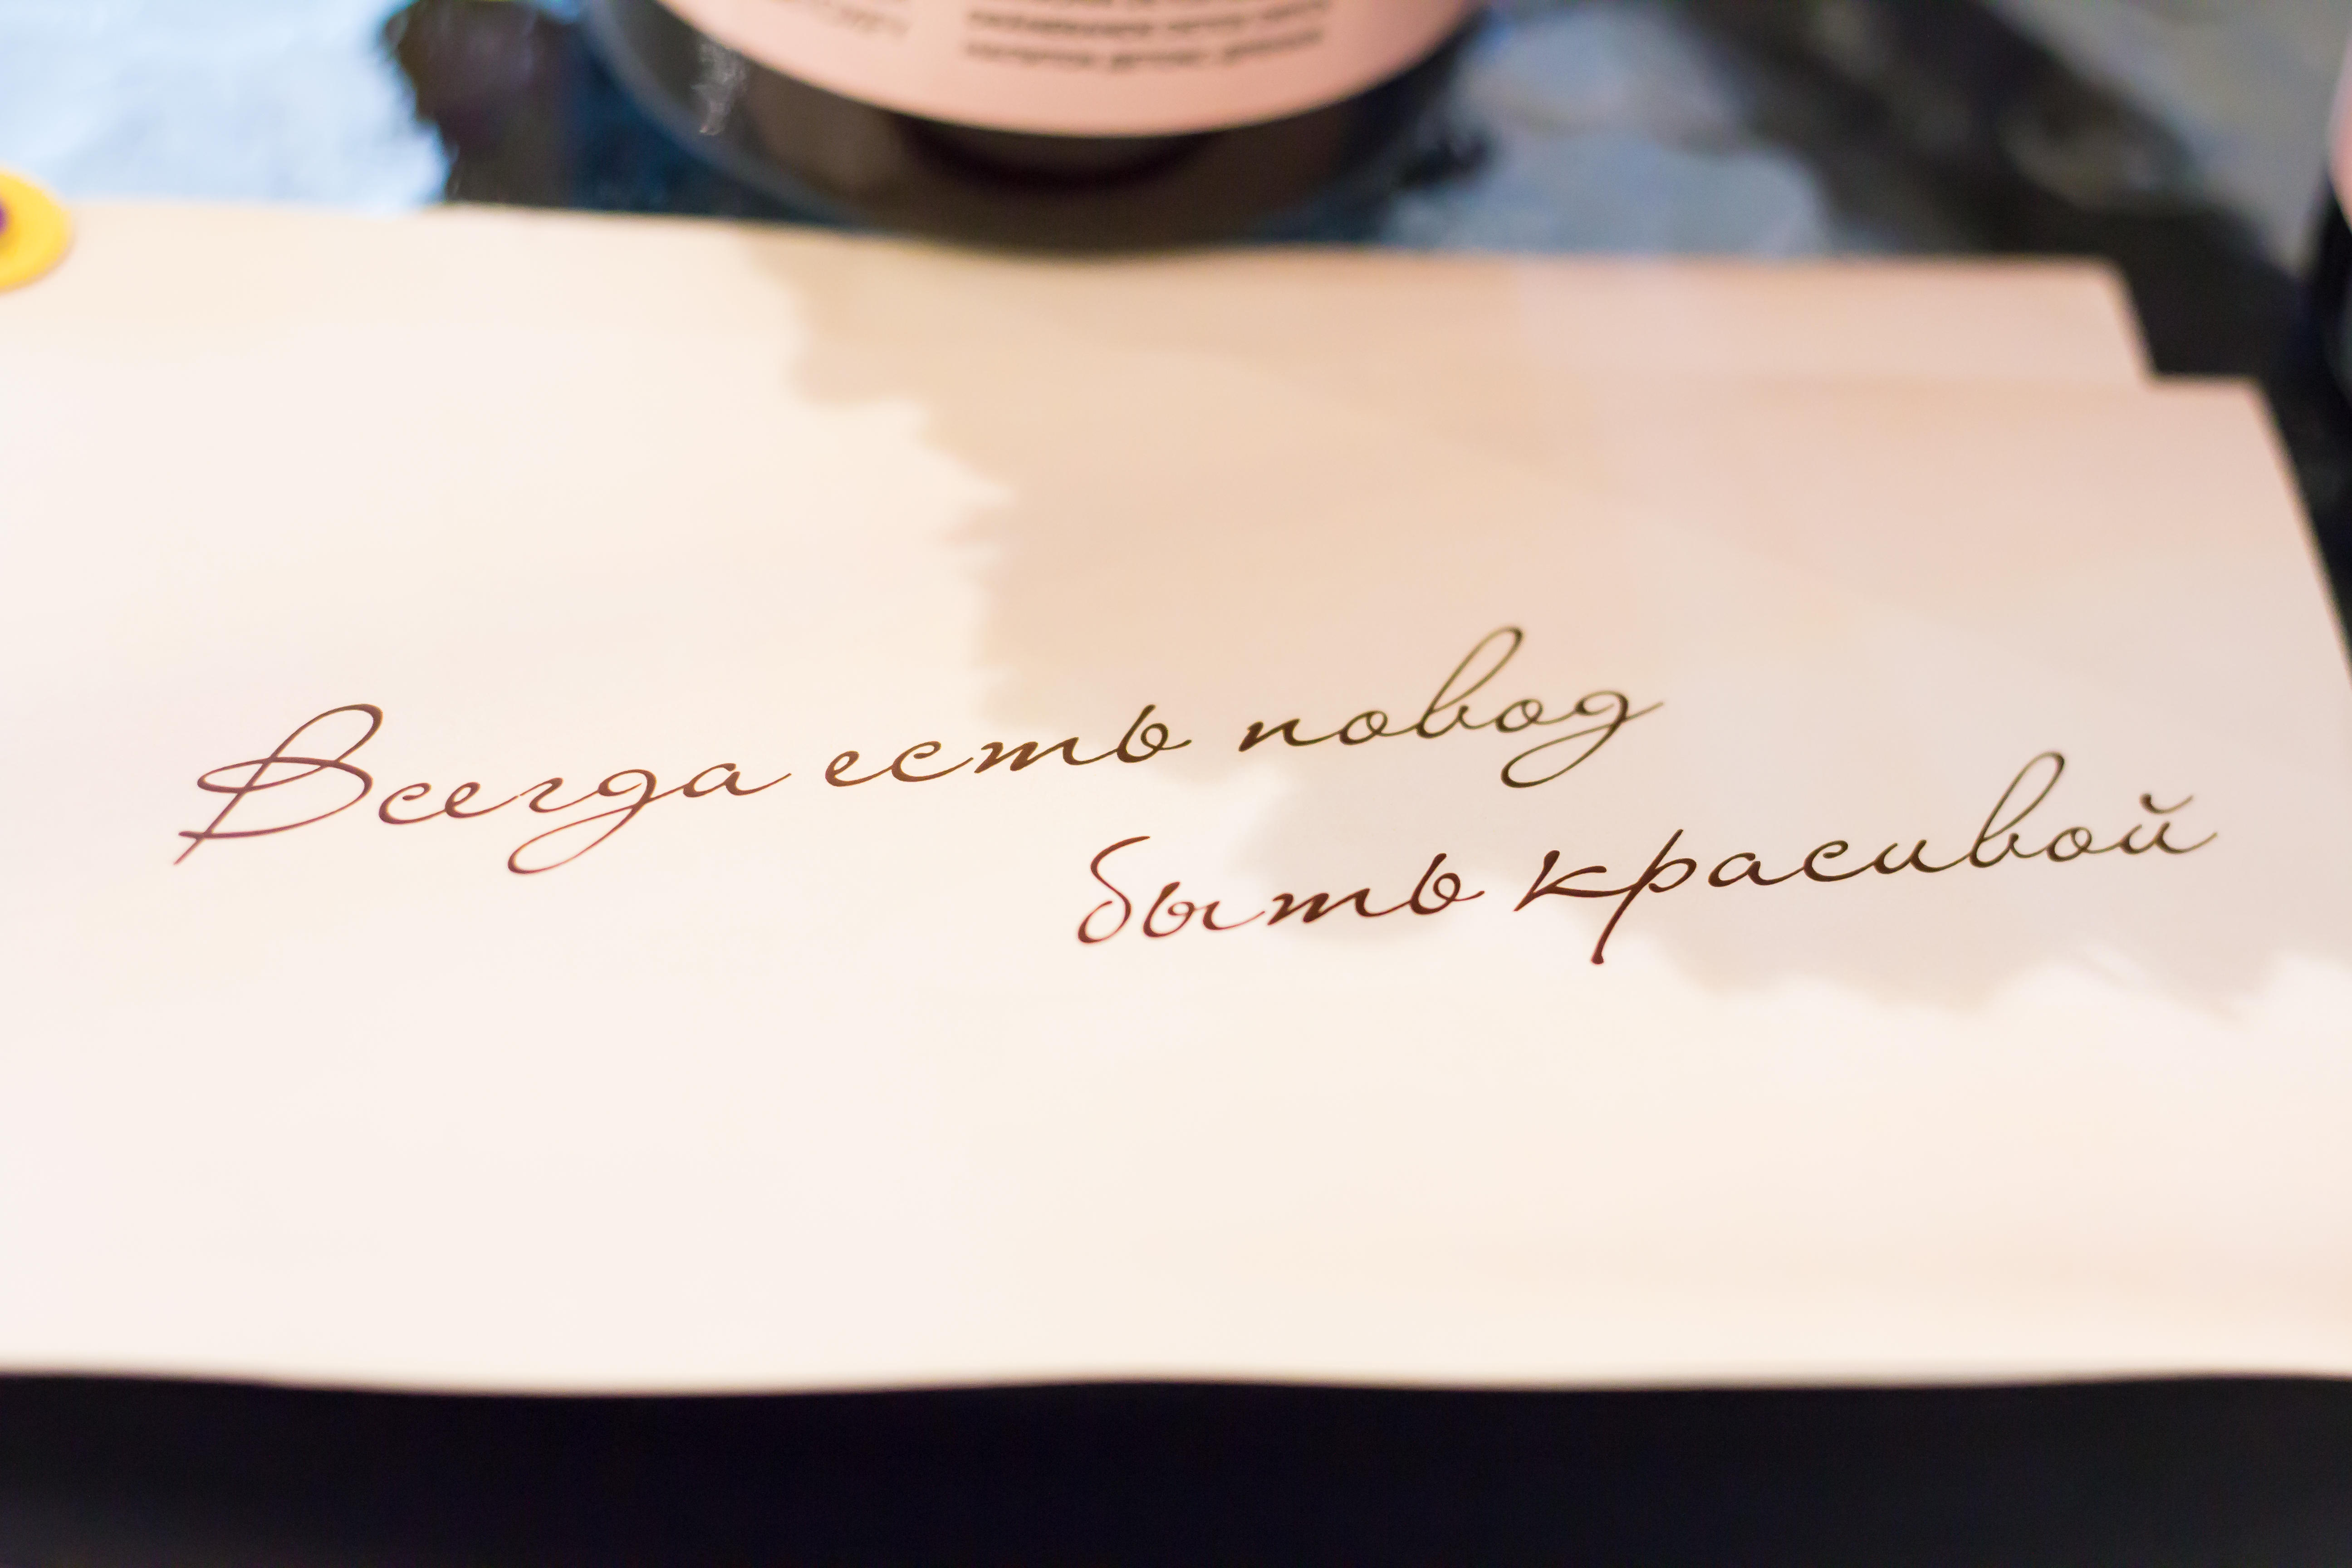 Всегда есть повод
быть красивой